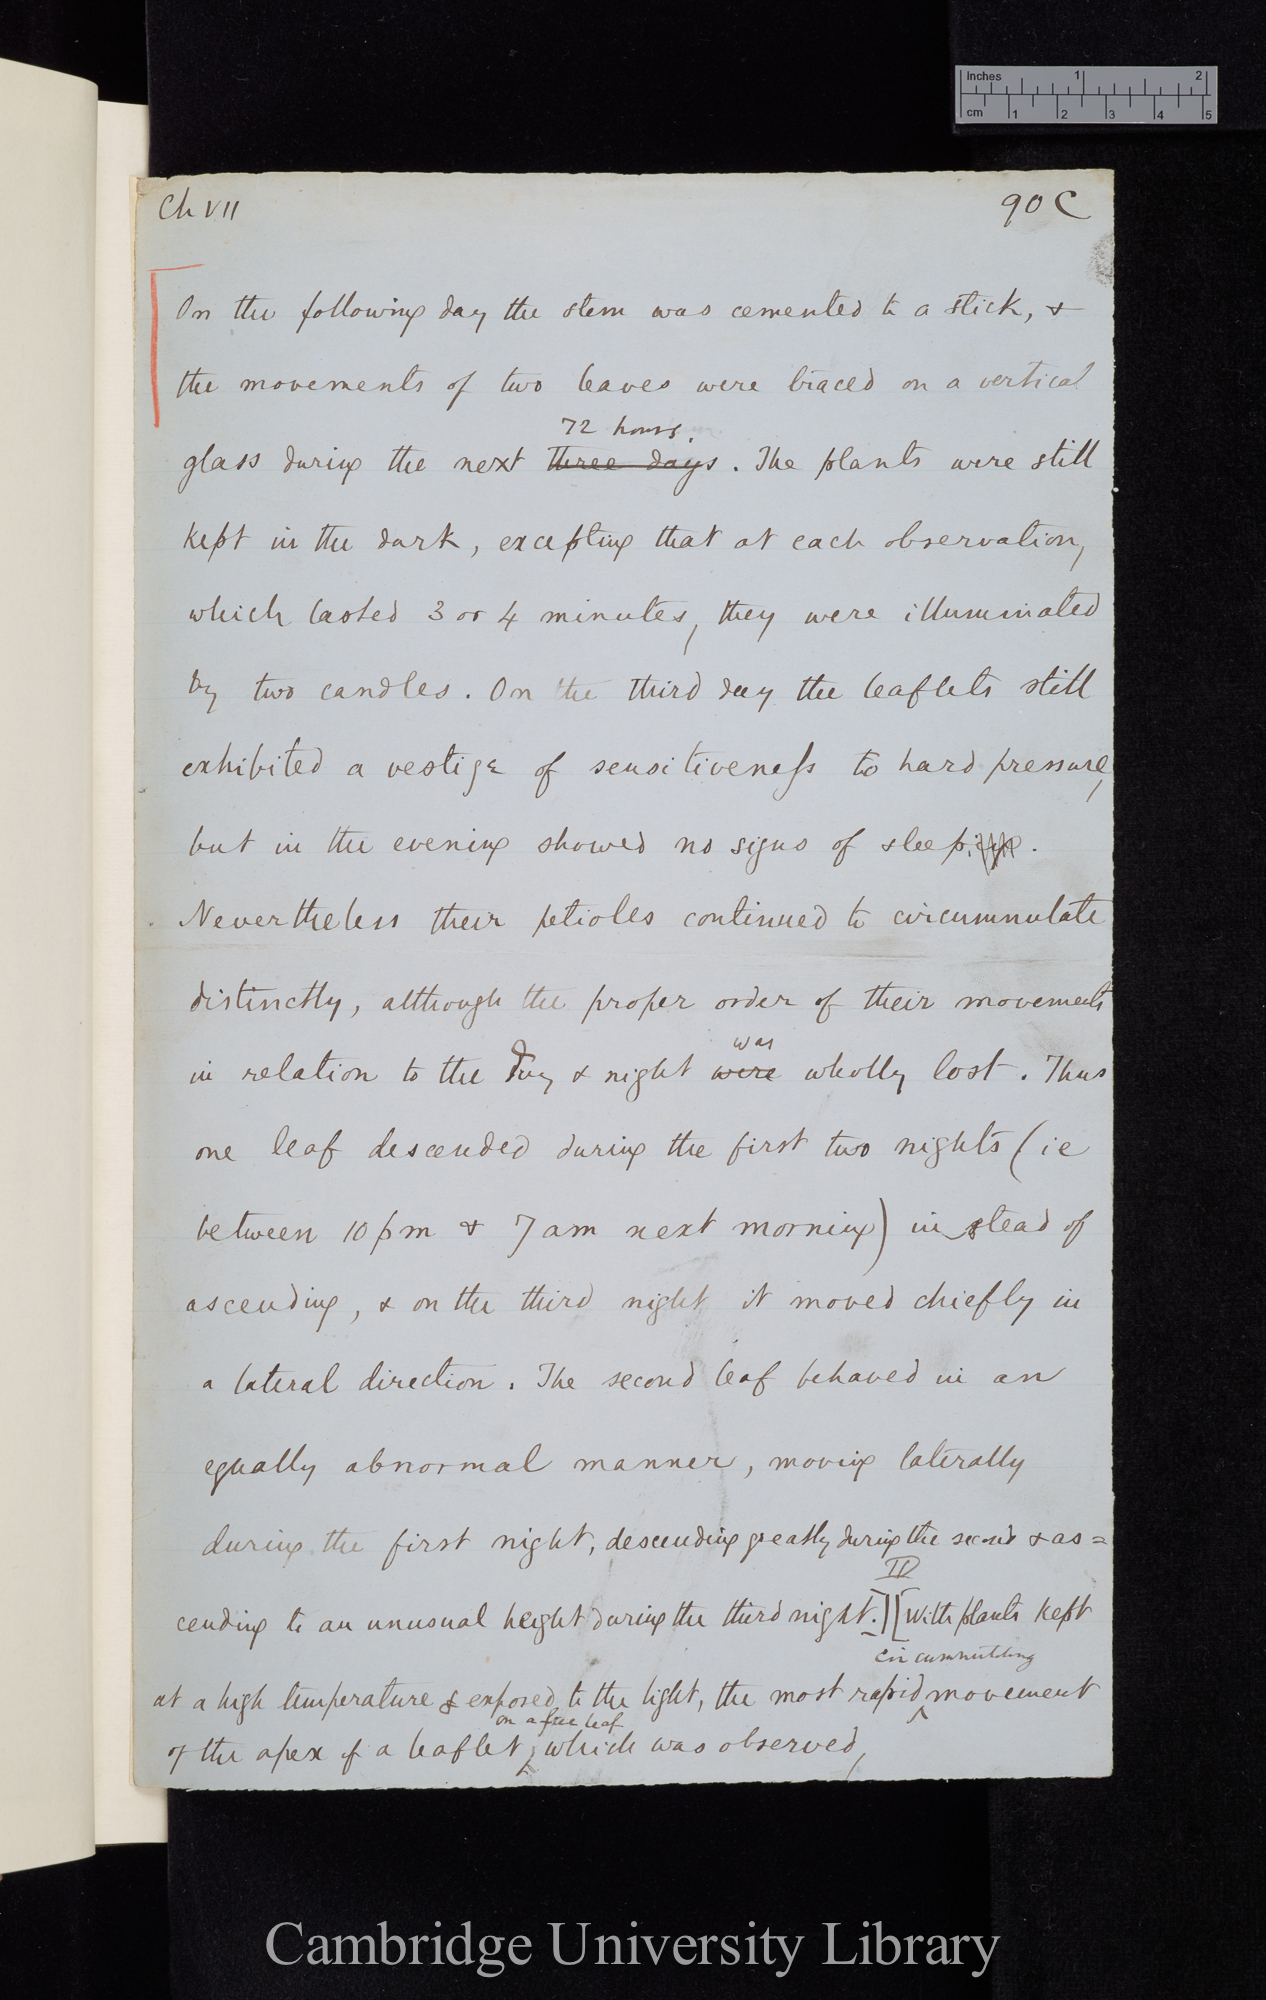 Inches 1 2
cm 1 2 3 4 5
Ch VII 90 C
On the following day the stem was cemented to a stick, &
the movements of two leaves were traced on a vertical
72 hours.
glass during the next three days. The plants were still
kept in the dark, excepting that at each observation,
which lasted 3 or 4 minutes, they were illuminated
by two candles. On the third day the leaflets still
exhibited a vestige of sensitiveness to hard pressure,
but in the evening showed no signs of sleep.
Nevertheless their petioles continued to circumnutate
distinctly, although the proper order of their movements
was
in relation to the day & night were wholly lost. Thus
one leaf descended during the first two nights (ie
between 10 pm & 7 am next morning) in stead of
ascending, & on the third night it moved chiefly in
a lateral direction. The second leaf behaved in an
equally abnormal manner, moving laterally
during the first night, descending greatly during the second & as=
cending to an unusual height during the third night.][With plants kept
circumnutating
at a high temperature & exposed to the light, the most rapid movement
on a free leaf
of the apex of a leaflet, which was observed,
Cambridge University Library